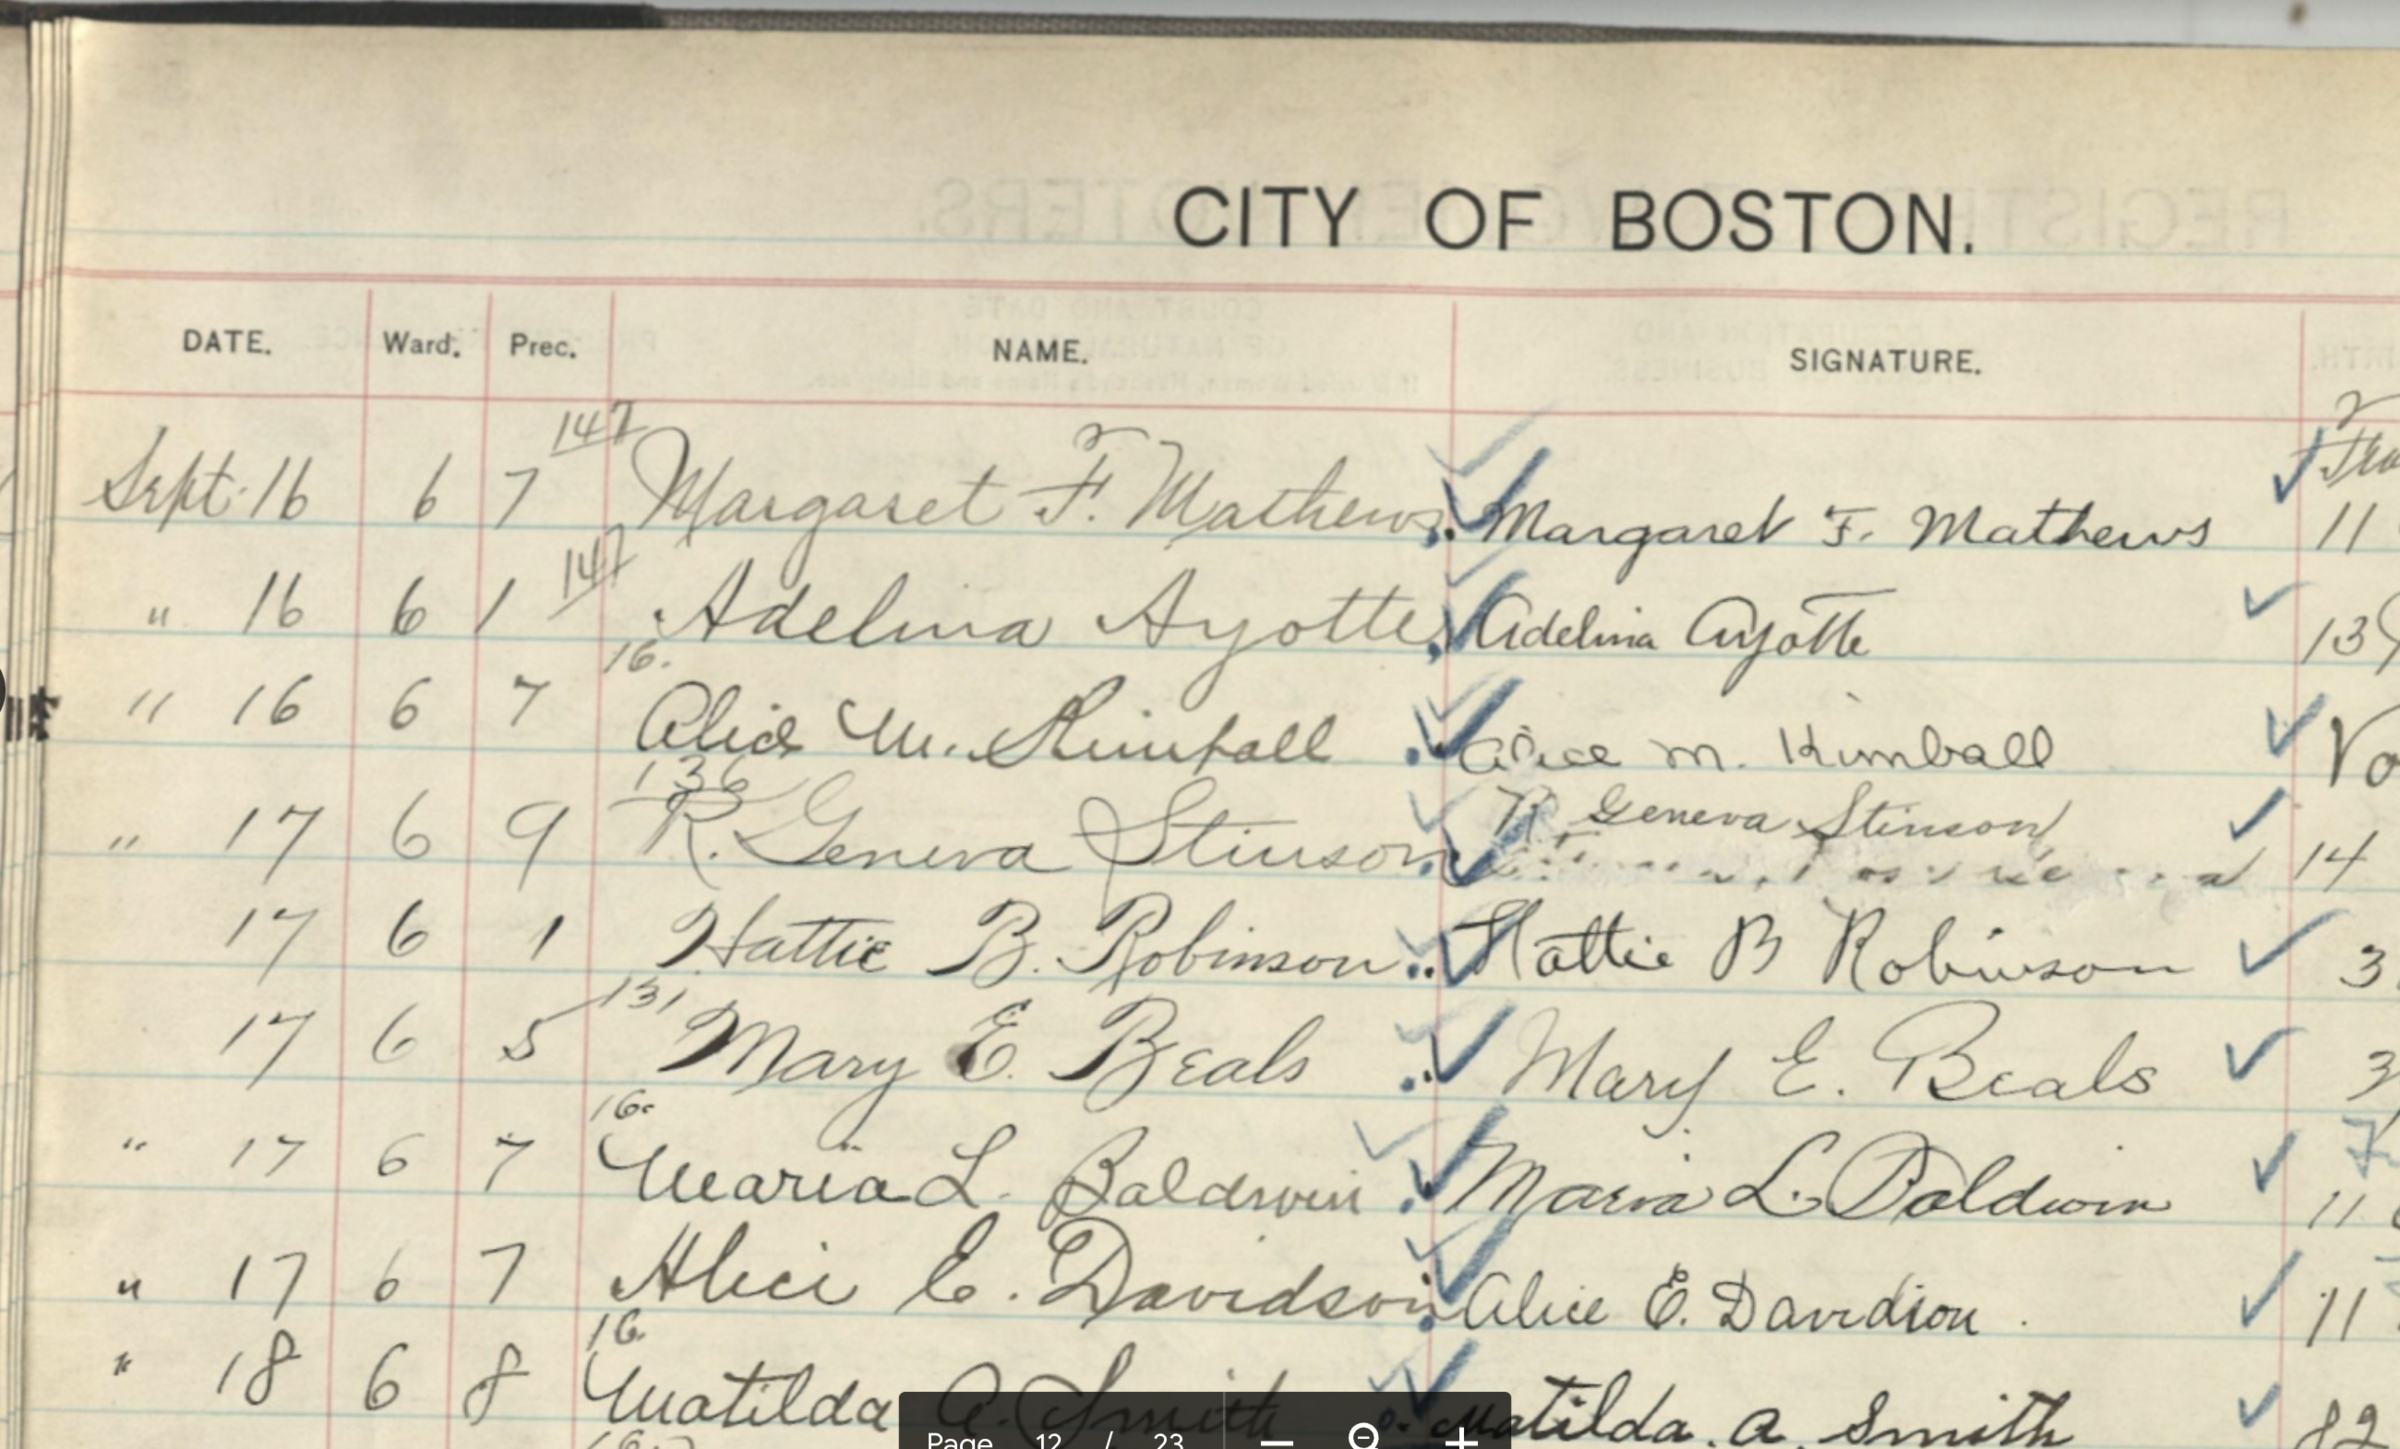 CITY OF BOSTON.
DATE. Ward. Prec. NAME. SIGNATURE.
147
Sept. 16 6 7 Margaret F. Mathews Margaret F. Mathews 11
147
" 16 6 1 Adelina Ayotte Adelina Ayotte 139
16.
" 16 6 7 Alice M. Kimball Alice M. Kimball
136
" 17 6 9 R. Geneva Stinson R. Geneva Stinson 14
17 6 1 Hattie B. Robinson Hattie B Robinson 3
131
17 6 5 Mary E. Beals Mary E. Beals 3
16.
" 17 6 7 Maria L. Baldwin Maria L. Baldwin 11
" 17 6 7 Alice E. Davidson Alice E. Davidson 11
16.
" 18 6 8 Matilda A. Smith Matilda. A. Smith 82
Page 12 / 23